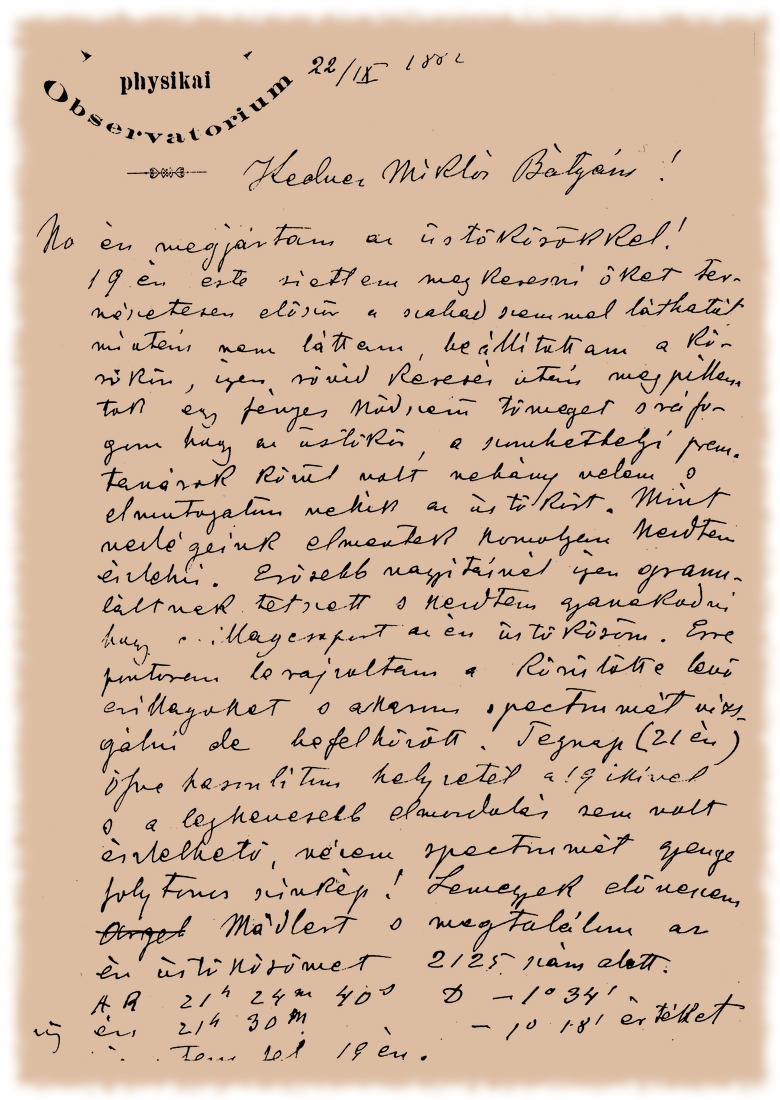 physikai
Observatorium
22/IX 1882
Kedves Miklós Bátyám !
No én megjártam az üstökösökkel!
19 én este siettem megkeresni őket ter-
mészetesen előszür a szabad szemmel láthatót
miután nem láttam, beállítottam a kö-
rökön, igen rövid keresés után megpillan-
tok egy fényes ködszerü tömeget s ráfo-
gom hogy az üstökös, a szombathelyi prem.
tanárok közül volt nehány velem s
elmutogatom nekik az üstököst. Mint
vendégeink elmentek komolyan kezdtem
észlelni. Erősebb nagyitásnál igen granu-
láltnak tetszett s kezdtem gyanakodni
hogy csillagcsoport az én üstökösöm. Erre
pontosan lerajzoltam a körülötte levő
csillagokat s akarom spectrumát vizs-
gálni de befelhözött. Tegnap (21 én)
Öszve hasonlitom helyzetét a 19 ikivel
s a legkevesebb elmozdulás sem volt
észlelhető, nézem spectrumát gyenge
folytonos szinkép! Lemegyek előveszem
Argel Mädlert s megtalálom az
én üstökösömet 2125 szám alatt.
A R 21h 24m 40s D – 1° 34'
én 21h 30m – 1° 18' értéket
19 én.